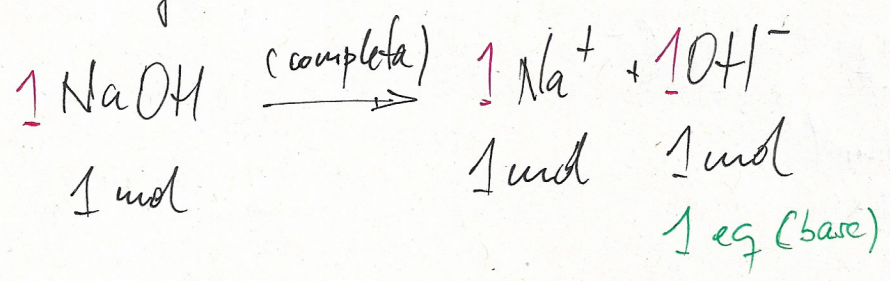 1 NaOH (completa) → 1 Na⁺ + 1 OH⁻
1 mol 1 mol 1 mol
1 eq (base)